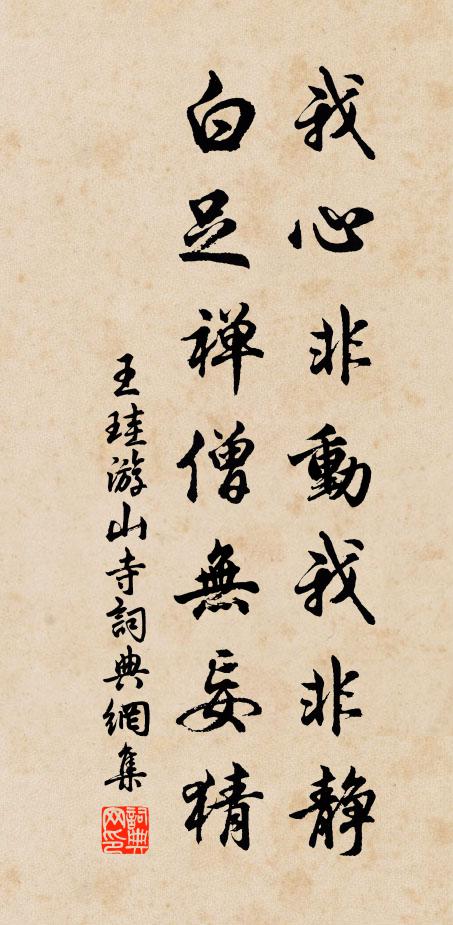 我心非動我非静
白足禅僧無妄猜
王珪游山寺詞典網集
詞典網印